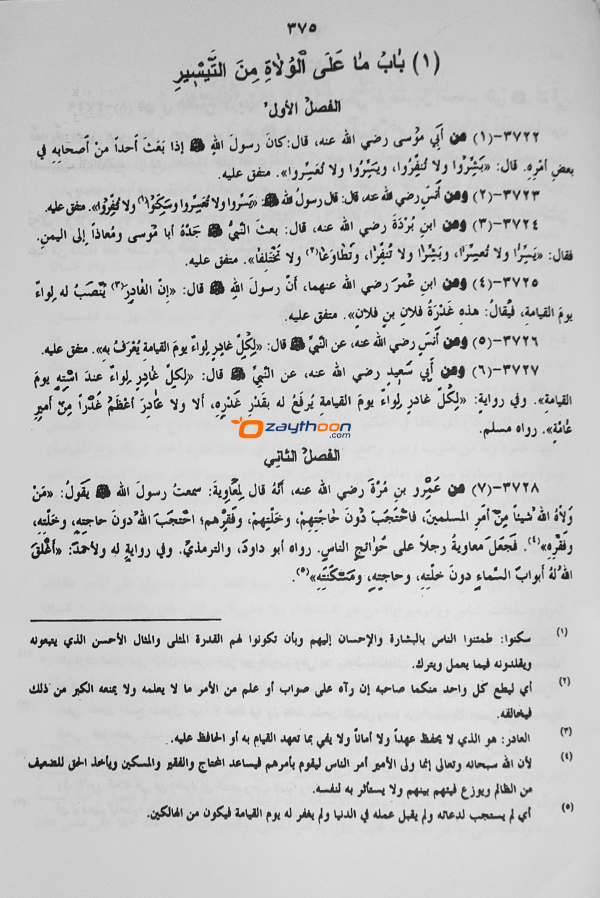 ٣٧٥
(١) بَابُ مَا عَلَى الْوُلَاةِ مِنَ التَّيْسِيرِ
الفصل الأول
٣٧٢٢-(١) عن أَبي مُوسى رضي الله عنه، قال: كانَ رسولُ اللهِ ﷺ إذا بَعَثَ أحداً منْ أصحابِهِ في
بعضِ أمرِهِ. قال: «بَشِّرُوا ولا تُنفِّرُوا، ويَسِّرُوا ولا تُعَسِّروا». متفق عليه.
٣٧٢٣-(٢) وعن أنَسٍ رضي الله عنه، قال: قال رسولُ الله ﷺ: «يَسِّروا ولا تُعسِّروا وسَكِّنُوا(١) ولا تُنفِّروا». متفق عليه.
٣٧٢٤-(٣) وعن ابنِ بُرْدَةَ رضي الله عنه، قال: بعثَ النَّبيُّ ﷺ جَدَّهُ أبا مُوسى ومُعاذاً إلى اليمنِ.
فقال: «يَسِّرَا ولا تُعسِّرَا، وبَشِّرَا ولا تُنفِّرَا، وتَطَاوَعَا(٢) ولا تَخْتَلِفا». متفق عليه.
٣٧٢٥-(٤) وعن ابنِ عُمرَ رضي الله عنهما، أنَّ رسولَ اللهِ ﷺ قال: «إنَّ الغَادِرَ(٣) يُنْصَبُ له لِواءٌ
يومَ القيامةِ، فيُقالُ: هذهِ غَدْرَةُ فلانِ بنِ فلانٍ». متفق عليه.
٣٧٢٦-(٥) وعن أنَسٍ رضي الله عنه، عن النَّبيِّ ﷺ قال: «لِكُلِّ غادِرٍ لِواءٌ يومَ القيامةِ يُعْرَفُ بهِ». متفق عليه.
٣٧٢٧-(٦) وعن أَبي سَعِيدٍ رضي الله عنه، عن النَّبيِّ ﷺ قال: «لكلِّ غادِرٍ لِواءٌ عندَ اسْتِهِ يومَ
القيامةِ». وفي روايةٍ: «لِكُلِّ غادرٍ لِواءٌ يومَ القيامةِ يُرفَعُ له بقَدْرِ غَدْرِهِ، ألا ولا غادِرَ أعْظَمُ غَدْراً مِنْ أميرِ
عَامَّةٍ». رواه مسلم.
Ozaythoon.com
الفصل الثاني
٣٧٢٨-(٧) عن عَمْرِو بنِ مُرَّةَ رضي الله عنه، أنَّهُ قال لِمُعاويَةَ: سمعتُ رسولَ اللهِ ﷺ يقولُ: «مَنْ
وَلاَّهُ اللهُ شيئاً مِنْ أمرِ المسلمينَ، فاحْتَجَبَ دُونَ حَاجَتِهِمْ، وخَلَّتِهِمْ، وفَقْرِهِم؛ احتجَبَ اللهُ دونَ حاجتِهِ، وخَلَّتِهِ،
وفقرِهِ»(٤). فَجَعَلَ معاويةُ رجلاً على حَوَائِجِ الناسِ. رواه أبو داودَ، والترمذيُّ. وفي روايةٍ له ولأحمدَ: «أغْلَقَ
اللهُ لهُ أبوابَ السَّماءِ دونَ خلَّتِهِ، وحاجتِهِ، ومَسْكَنَتِهِ»(٥).
(١) سكنوا: طمئنوا الناس بالبشارة والإحسان إليهم وبأن تكونوا لهم القدرة المثلى والمثال الأحسن الذي يتبعونه
ويقلدونه فيما يعمل ويترك.
(٢) أي ليطع كل واحد منكما صاحبه إن رآه على صواب أو علم من الأمر ما لا يعلمه ولا يمنعه الكبر من ذلك
فيخالفه.
(٣) الغادر: هو الذي لا يحفظ عهداً ولا أماناً ولا يفي بما تعهد القيام به أو الحافظ عليه.
(٤) لأن الله سبحانه وتعالى إنما ولى الأمير أمر الناس ليقوم بأمرهم فيساعد المحتاج والفقير والمسكين ويأخذ الحق للضعيف
من الظالم ويوزع فيئهم بينهم ولا يستأثر به لنفسه.
(٥) أي لم يستجب لدعائه ولم يقبل عمله في الدنيا ولم يغفر له يوم القيامة فيكون من الهالكين.